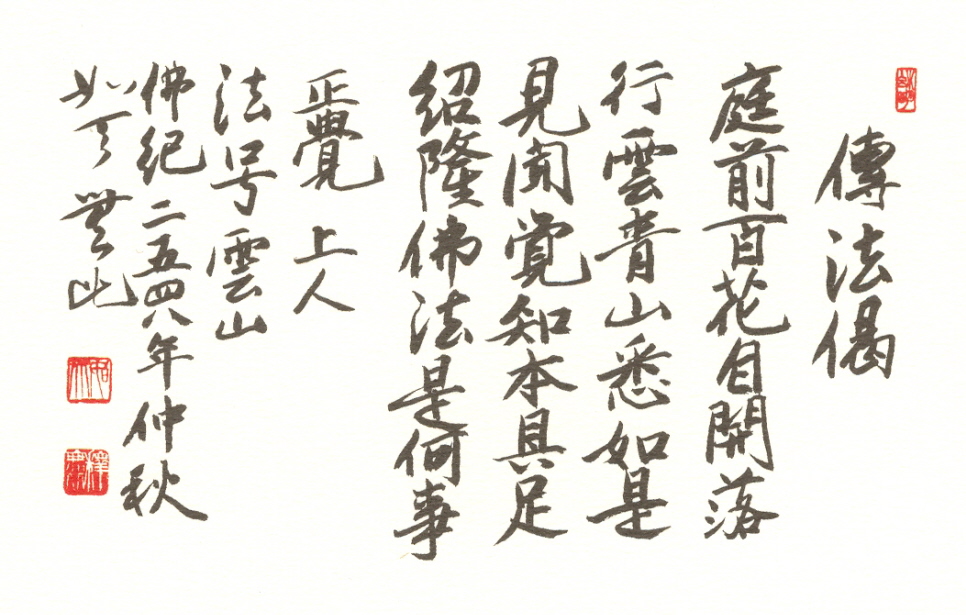 傳法偈
庭前百花自開落
行雲青山悉如是
見聞覺知本具足
紹隆佛法是何事
正覺 上人
法号雲山
佛纪二五四八年仲秋
如了無此